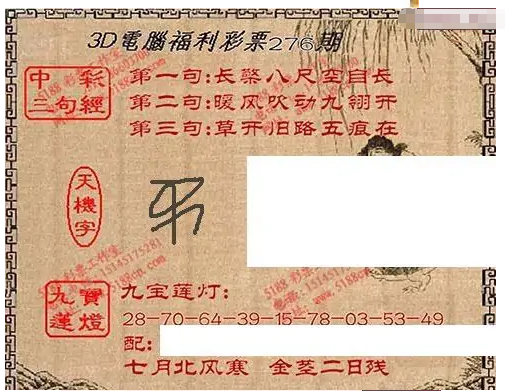 3D電腦福利彩票276期
中彩
三句經
第一句:长檠八尺空自长
第二句:暖风吹动九翎开
第三句:草开旧路五痕在
天機字
九寶
蓮燈
九宝莲灯:
28-70-64-39-15-78-03-53-49
配:
七月北风寒 金茎二日残
5188彩票工作室
15145175281